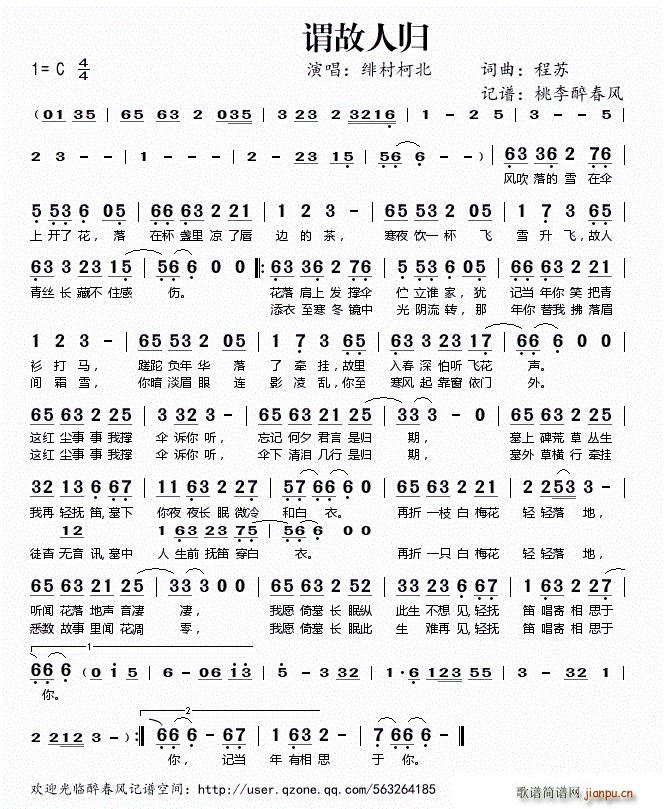 谓故人归
1=C 4/4 演唱：绯村柯北 词曲：程苏
记谱：桃李醉春风
(01 35 | 65 63 2 035 | 3 23 2 3216 | 1 - 2 5 | 3 - - 5 |
2 3 - - | 1 - 2 - | 2 - 23 15 | 56 6 - -) | 63 36 2 76 |
风吹 落的 雪 在伞
5 53 6 05 | 66 63 2 21 | 1 2 3 - | 65 53 2 05 | 1 7 3 65 |
上 开了 花， 落 在杯 盏里 凉 了唇 边 的 茶， 寒夜 饮一 杯 飞 雪 升 飞，故人
63 3 23 15 | 56 6 0 0 |: 63 36 2 76 | 5 53 6 05 | 66 63 2 21 |
青丝 长 藏不 住感 伤。 花落 肩上 发 撑伞 伫 立谁 家， 犹 记当 年你 笑 把青
添衣 至寒 冬 镜中 光 阴流 转， 那 年你 替我 拂 落眉
1 2 3 - | 65 53 2 05 | 1 7 3 65 | 63 3 23 17 | 66 6 0 0 |
衫 打 马， 蹉跎 负年 华 落 了 牵 挂，故里 入春 深 怕听 飞花 声。
间 霜 雪， 你暗 淡眉 眼 连 影 凌 乱，你至 寒风 起 靠窗 依门 外。
65 63 2 25 | 3 32 3 - | 65 63 21 25 | 33 3 - 0 | 65 63 2 25 |
这红 尘事 事 我撑 伞 诉你 听， 忘记 何夕 君言 是归 期， 墓上 碑荒 草 丛生
这红 尘事 事 我撑 伞 诉你 听， 伞下 清泪 几行 是归 期， 墓外 草横 行 牵挂
32 13 6 67 | 11 63 2 27 | 57 66 6 0 | 65 63 2 21 | 2 253 3 0 |
我再 轻抚 笛，墓下 你夜 夜长 眠 微冷 和白 衣。 再折 一枝 白 梅花 轻 轻落 地，
12 1 63 23 75 | 56 6 0 0
徒沓 无音 讯，墓中 人 生前 抚笛 穿白 衣。 再折 一只 白 梅花 轻 轻落 地，
65 63 21 25 | 33 3 0 0 | 65 63 2 52 | 65 23 6 67 | 1 63 2 27 |
听闻 花落 地声 音凄 凄， 我愿 倚墓 长 眠纵 此生 不想 见，轻抚 笛 唱寄 相 思于
悉数 故事 里闻 花凋 零， 我愿 倚墓 长 眠此 生 难再 见，轻抚 笛 唱寄 相 思于
1
66 6 (0 1 5 | 6 - 06 13 | 6 - - 5 | 1·6 123 5 | 3 - 32 1 |
你。
2
2 212 3 -) :| 66 6 - 67 | 1 63 2 - | 7 66 6 - ||
你， 记当 年 有相 思 于 你。
欢迎光临醉春风记谱空间：http://user.qzone.qq.com/563264185
歌谱简谱网
jianpu.cn